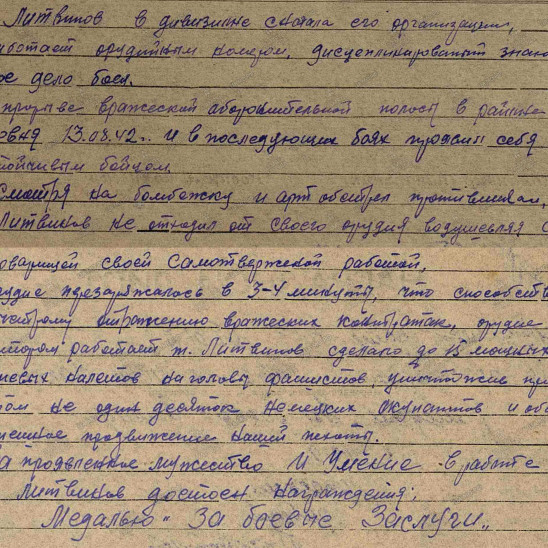 Литвинов в дивизионе с начала его организации,
работает орудийным номером, дисциплинированый знающ
ое дело боец.
прорыве вражеской оборонительной полосы в районе
евня 13.08.42г. и в последующих боях проявил себя
тойчивым бойцом.
смотря на бомбежку и артобстрел противника,
Литвинов не отходил от своего орудия водушевляя с
оварищей своей самотверженой работой,
рудие перезаряжалось в 3-4 минуты, что способств
ыстрому отражению вражеских контратак, орудие
котором работает т. Литвинов сделало до 15 мощных
невых налетов на головы фашистов, уничтожив при
том не один десяток немецких окупантов и обе
пешное продвижение нашей пехоты.
а проявленное мужество и умение в работе
Литвинов достоен награждения:
Медалью „За боевые Заслуги„